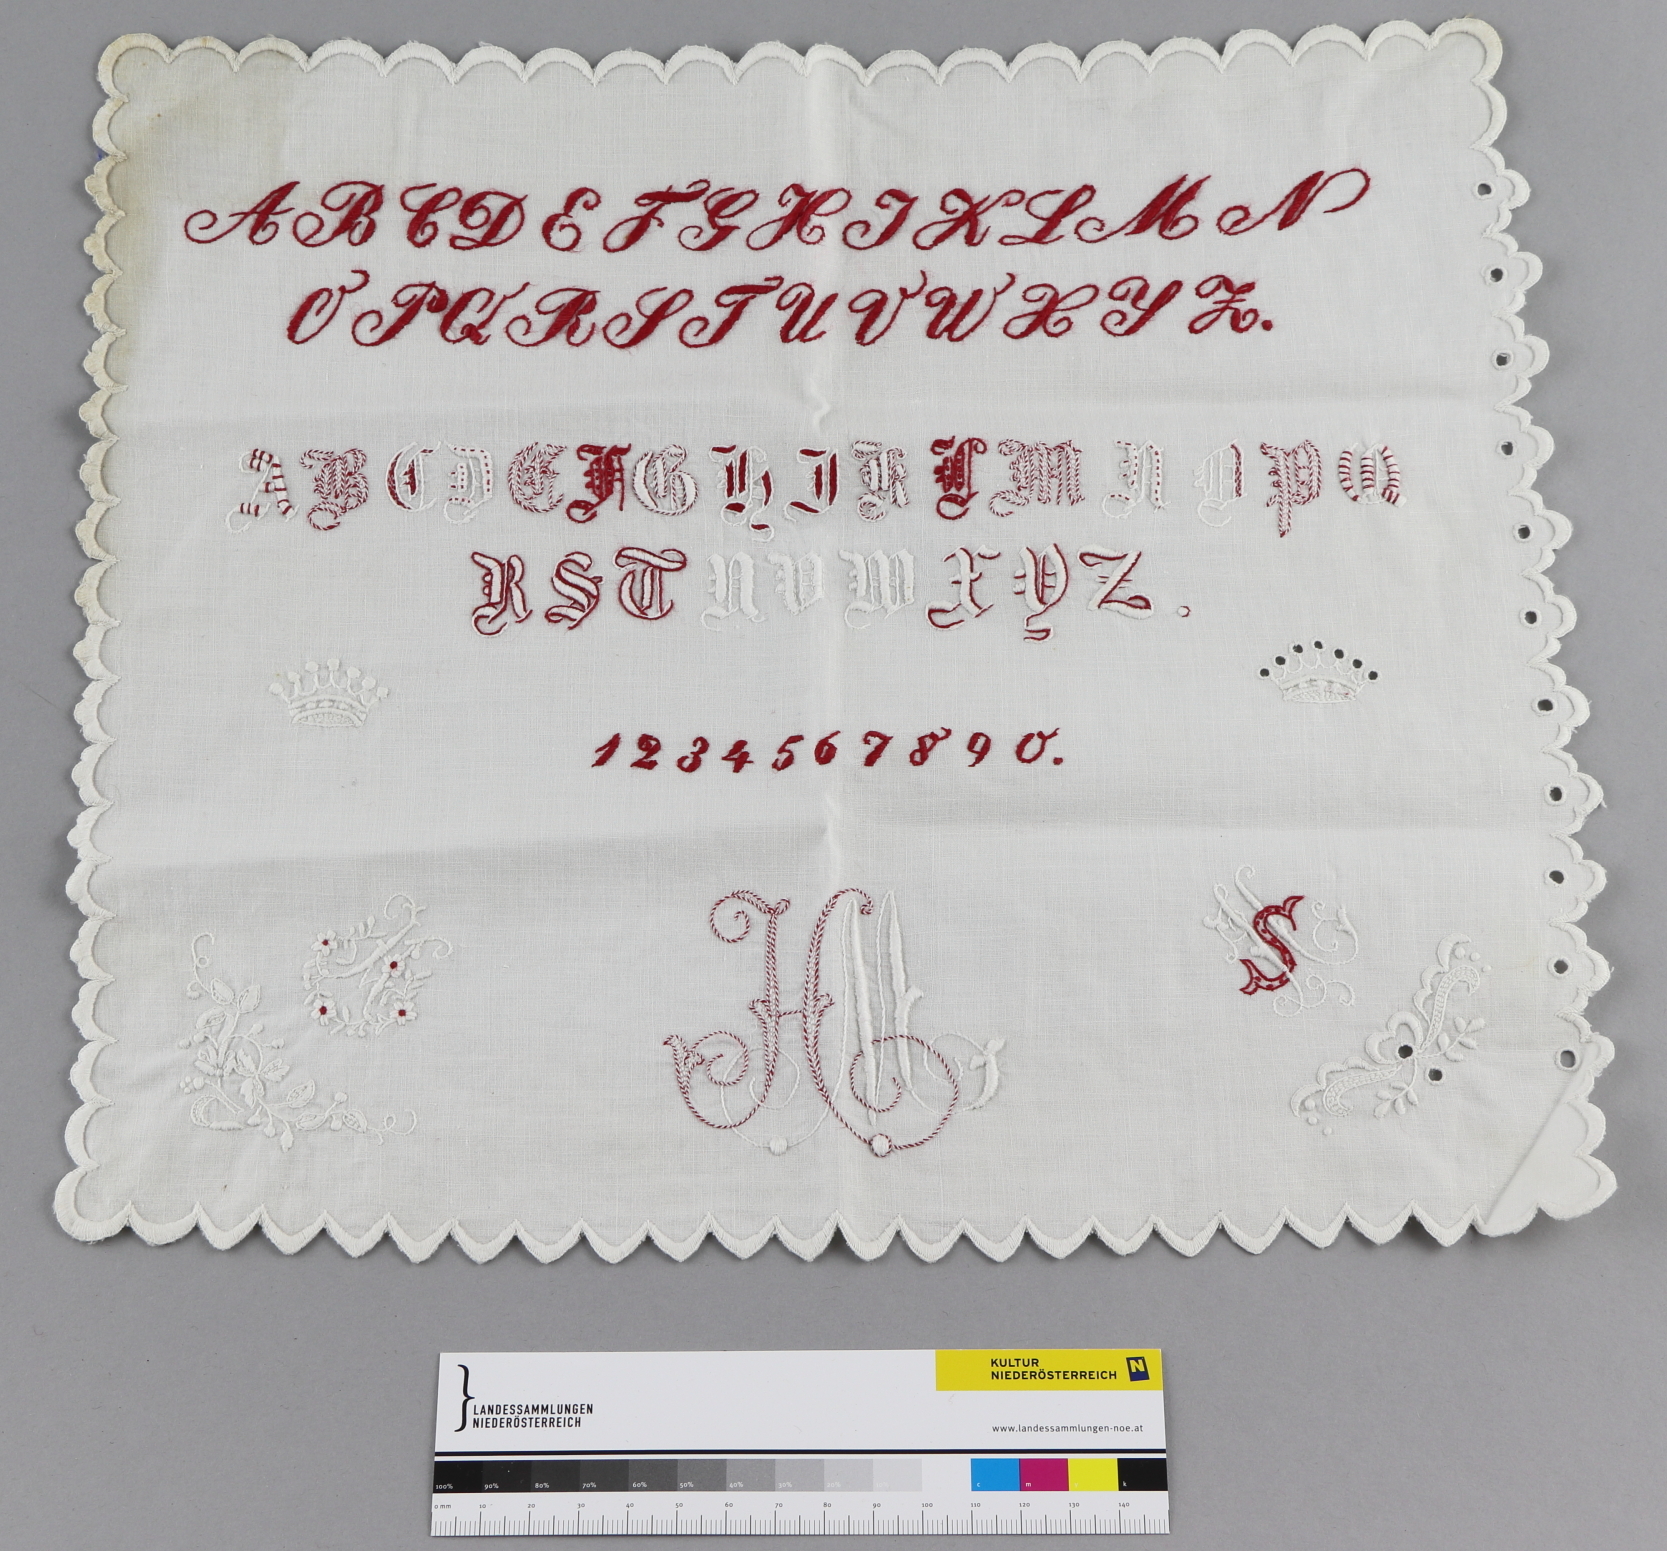 A B C D E F G H I K L M N
O P Q R S T U V W X Y Z.
A B C D E F G H I K L M N O P Q
R S T U V W X Y Z.
1 2 3 4 5 6 7 8 9 0.
H M
S
LANDESSAMMLUNGEN
NIEDERÖSTERREICH
KULTUR
NIEDERÖSTERREICH
N
www.landessammlungen-noe.at
100% 90% 80% 70% 60% 50% 40% 30% 20% 10% c m y k
0 mm 10 20 30 40 50 60 70 80 90 100 110 120 130 140